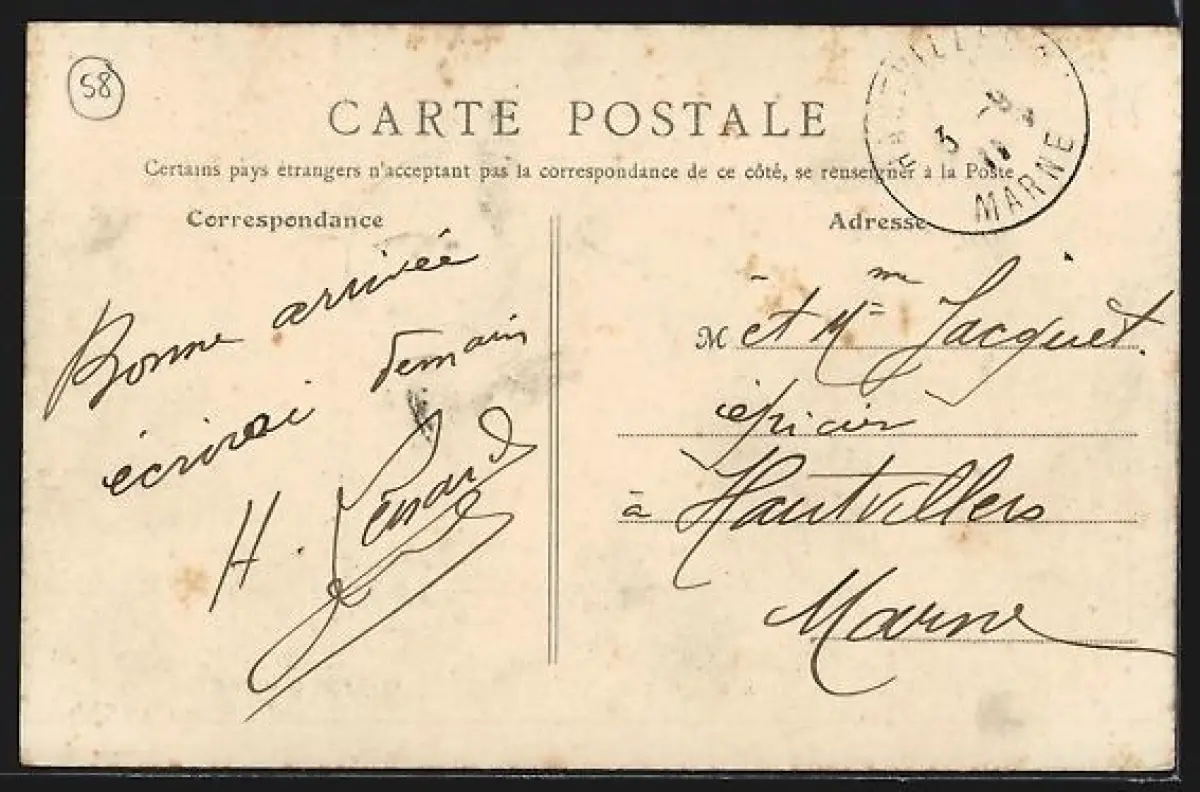 58
CARTE POSTALE
Certains pays étrangers n'acceptant pas la correspondance de ce côté, se renseigner à la Poste
Correspondance
Bonne arrivée
écrirai demain
H.
Adresse
3 -9
11
MARNE
M et Mme Jacquet.
épicier
à Hautvillers
Marne